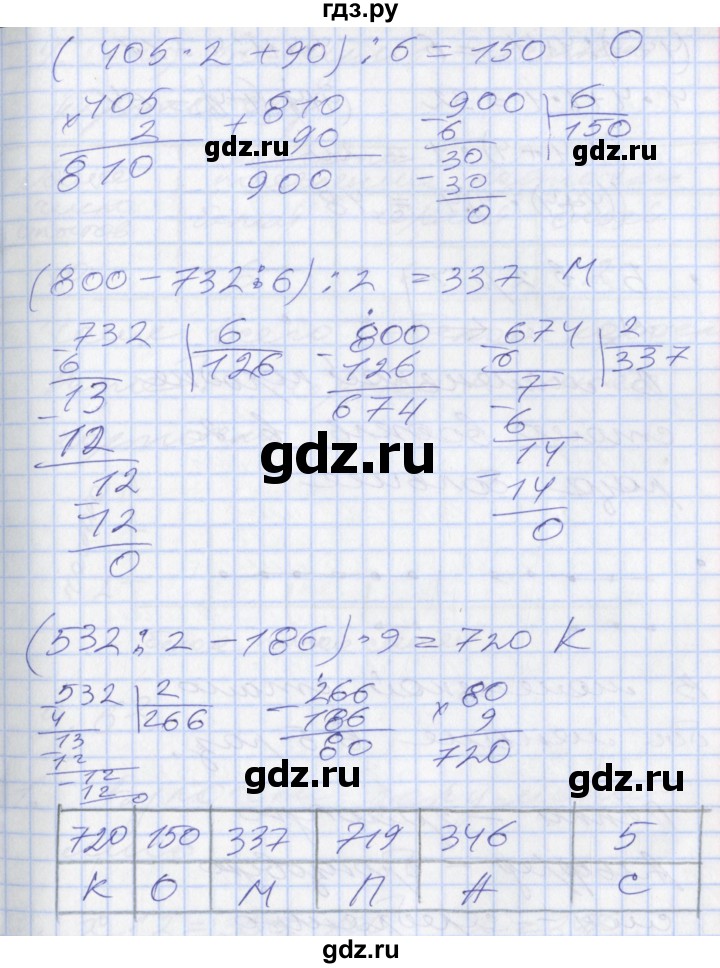 гдз.ру
(405·2+90):6=150 О
405 810 900 6
× 2 + 90 - 6 150
810 900 30
gdz.ru gdz.ru
- 30
0
(800-732:6):2 =337 М
-732 6 -800 -674 2
6 126 126 6 337
13 674 7
-12 -6
12 14
-12 -14
0 0
gdz.ru
(532:2-186)·9=720 К
-532 2 -266 ×80
4 266 186 9
13 80 720
-12
-12
12 0
gdz.ru gdz.ru
720 150 337 719 346 5
К О М П А С
gdz.ru